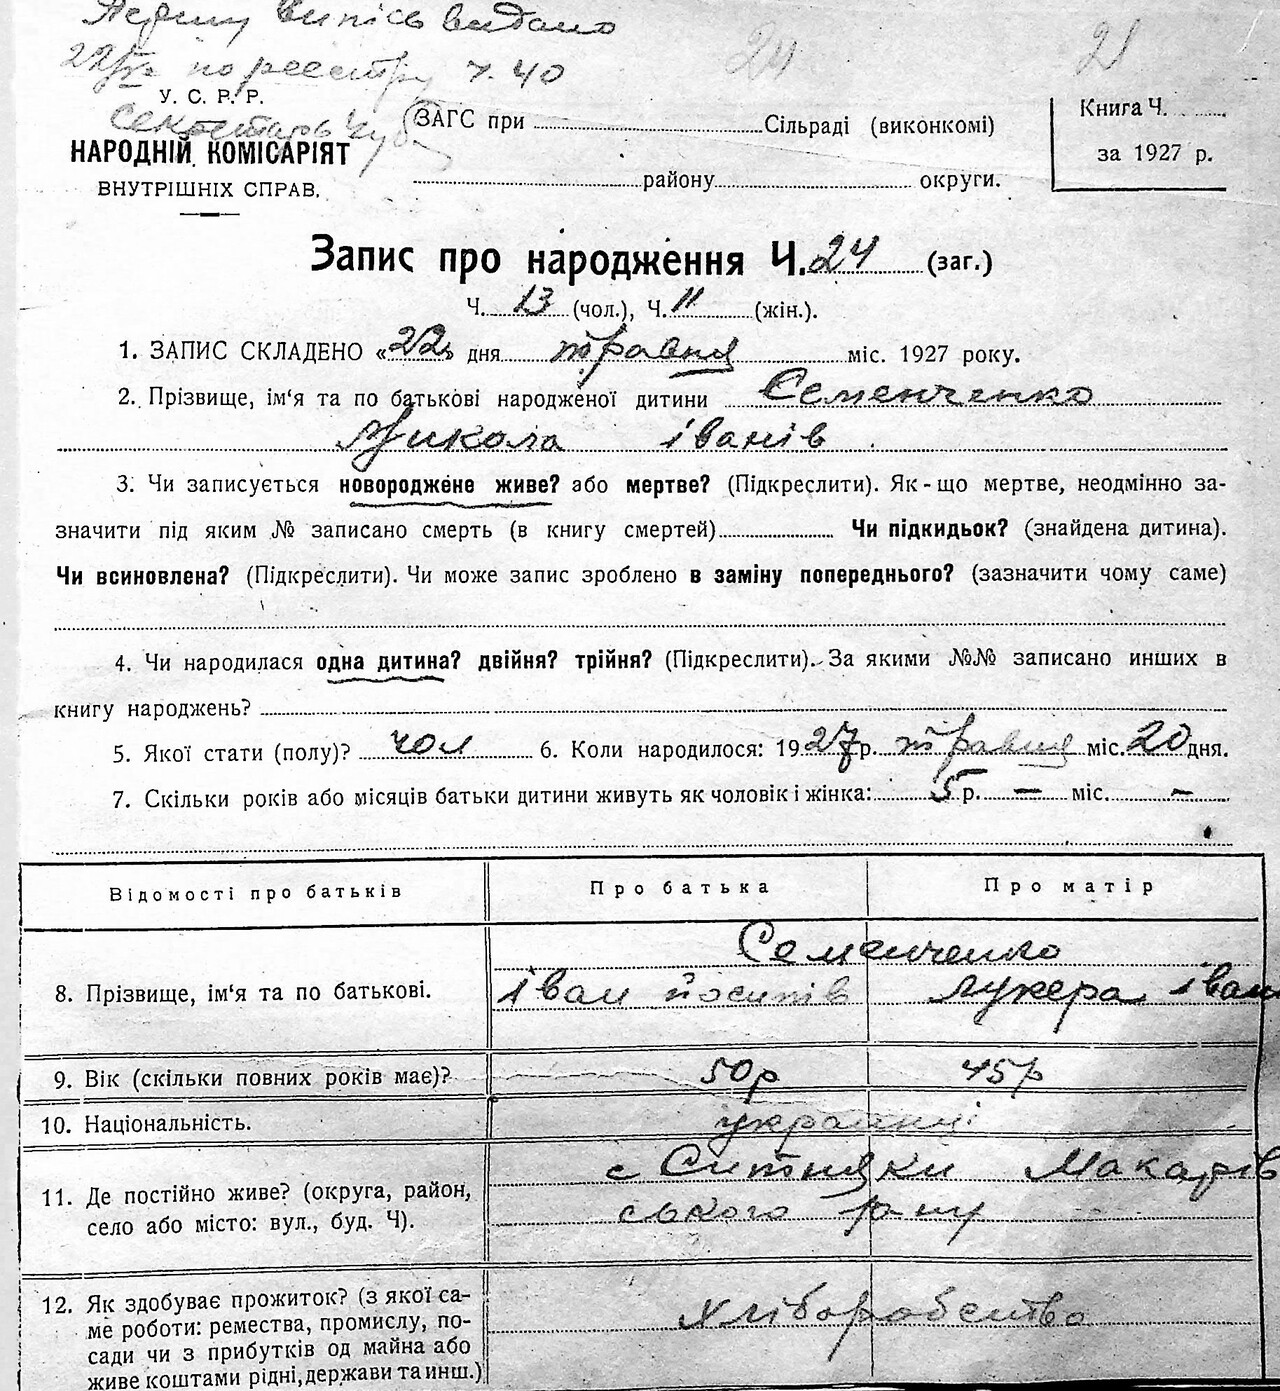 Першу Випись видано
22/V по реєстру ч. 40
24
21
Секретарь
У. С. Р. Р.
НАРОДНІЙ КОМІСАРІЯТ
ВНУТРІШНІХ СПРАВ.
ЗАГС при Сільраді (виконкомі)
району округи.
Книга Ч.
за 1927 р.
Запис про народження Ч. 24 (заг.)
Ч. 13 (чол.), Ч. 11 (жін.).
1. ЗАПИС СКЛАДЕНО «22» дня травня міс. 1927 року.
2. Прізвище, ім'я та по батькові народженої дитини Семенченко
Микола іванів
3. Чи записується новороджене живе? або мертве? (Підкреслити). Як-що мертве, неодмінно за-
значити під яким № записано смерть (в книгу смертей) Чи підкидьок? (знайдена дитина).
Чи всиновлена? (Підкреслити). Чи може запис зроблено в заміну попереднього? (зазначити чому саме)
4. Чи народилася одна дитина? двійня? трійня? (Підкреслити). За якими №№ записано инших в
книгу народжень?
5. Якої стати (полу)? чол 6. Коли народилося: 1927 р. травня міс. 20 дня.
7. Скільки років або місяців батьки дитини живуть як чоловік і жінка: 5 р. — міс. —
Відомості про батьків Про батька Про матір
Семенченко
8. Прізвище, ім'я та по батькові. іван йосипів Лукера іван
9. Вік (скільки повних років має)? 50р 45р
10. Національність. українці
11. Де постійно живе? (округа, район,
село або місто: вул., буд. Ч).
с Ситняки Макарів
ського р-ну
12. Як здобуває прожиток? (з якої са-
ме роботи: ремества, промислу, по-
сади чи з прибутків од майна або
живе коштами рідні, держави та инш.)
Хліборобство